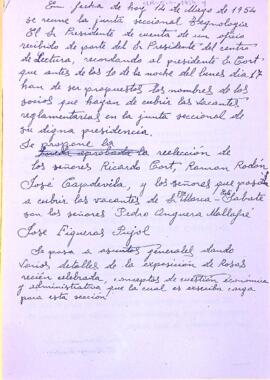 En fecha de hoy 14 de Mayo de 1954
se reune la junta seccional
El Sr Presidente da cuenta de un oficio
recibido de parte del Sr Presidente del centro
de Lectura, recordando al presidente E. Cort
que antes de las 10 de la noche del lunes dia 17
han de ser propuestos los nombres de los
socios que hayan de cubrir las vacantes
reglamentarias en la junta seccional de
su digna presidencia.
Se propone la
la reelección de
los señores Ricardo Cort, Ramon Rodón
José Capdevila, y los señores que pasan
a cubrir las vacantes de
son los señores Pedro Anguera Mallafré
José Figueras Pujol
Se pasa a asuntos generales dando
varios detalles de la exposición de Rosas
recien celebrada, conceptos de cuestión económica
y administrativa que la cual es
para esta sección